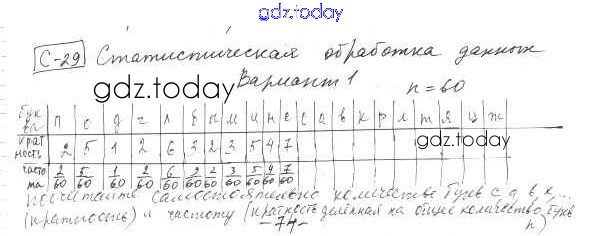 gdz.today
С-29 Статистическая обработка данных
Вариант 1 n = 60
gdz.today
бук ва п о д г л б н м и н с е с а в х к р л т я ц ж
крат ность 2 5 1 2 6 3 2 3 5 4 7
gdz.today
часто та 2/60 5/60 1/60 2/60 6/60 3/60 2/60 3/60 5/60 4/60 7/60
посчитайте самостоятельно количество букв с, а, в, к, ...
(кратность) и частоту (кратность делённая на общее количество букв n)
-74-
gdz.today